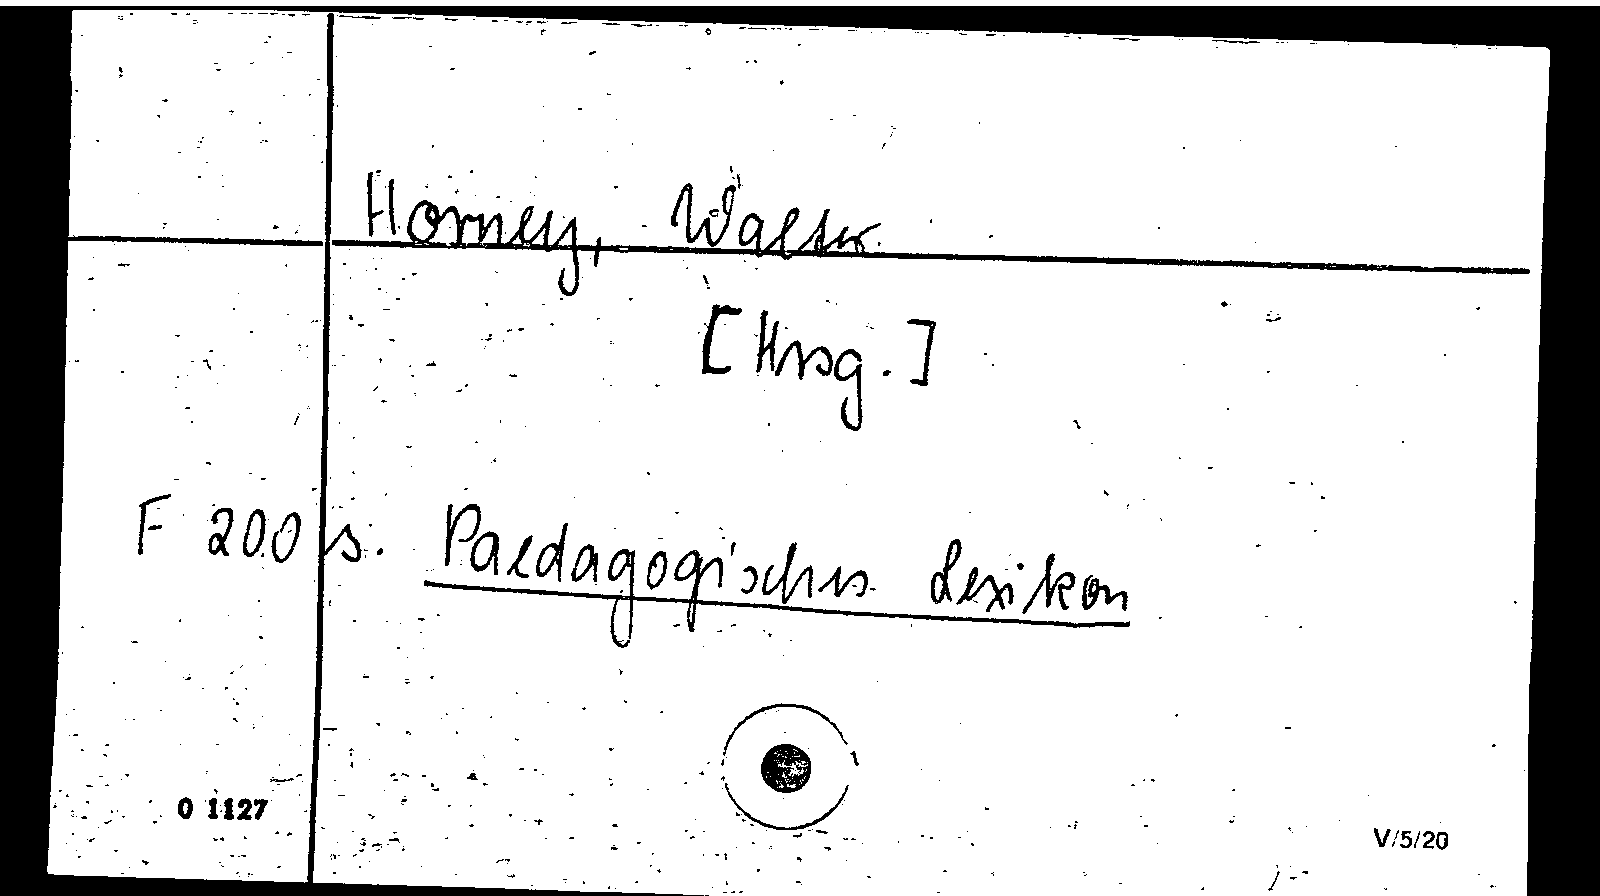 Horney, Walter
[Hrsg.]
F 200 s. Paedagogisches Lexikon
O 1127
V/5/20